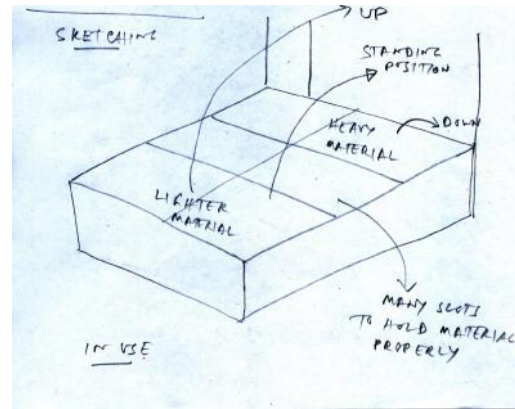 SKETCHING
UP
STANDING
POSITION
HEAVY
MATERIAL
DOWN
LIGHTER
MATERIAL
MANY SLOTS
TO HOLD MATERIAL
PROPERLY
IN USE